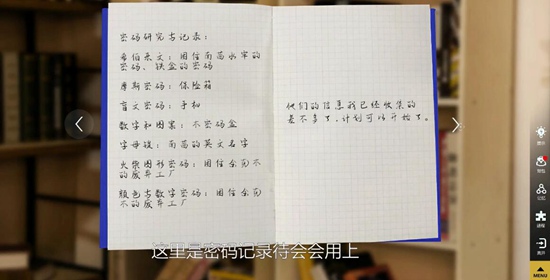 密码研究与记录:
希伯来文:困住南茜水牢的
密码、铁盒的密码
摩斯密码:保险箱
盲文密码:手机
数字和图案:木密码盒
字母锁:南茜的英文名字
火柴图形密码:困住金万木
的废弃工厂
颜色与数字密码:困住金万
木的废弃工厂
他们的信息我已经收集的
差不多了,计划可以开始了。
这里是密码记录待会会用上
提示
背包
设置
离开
MENU